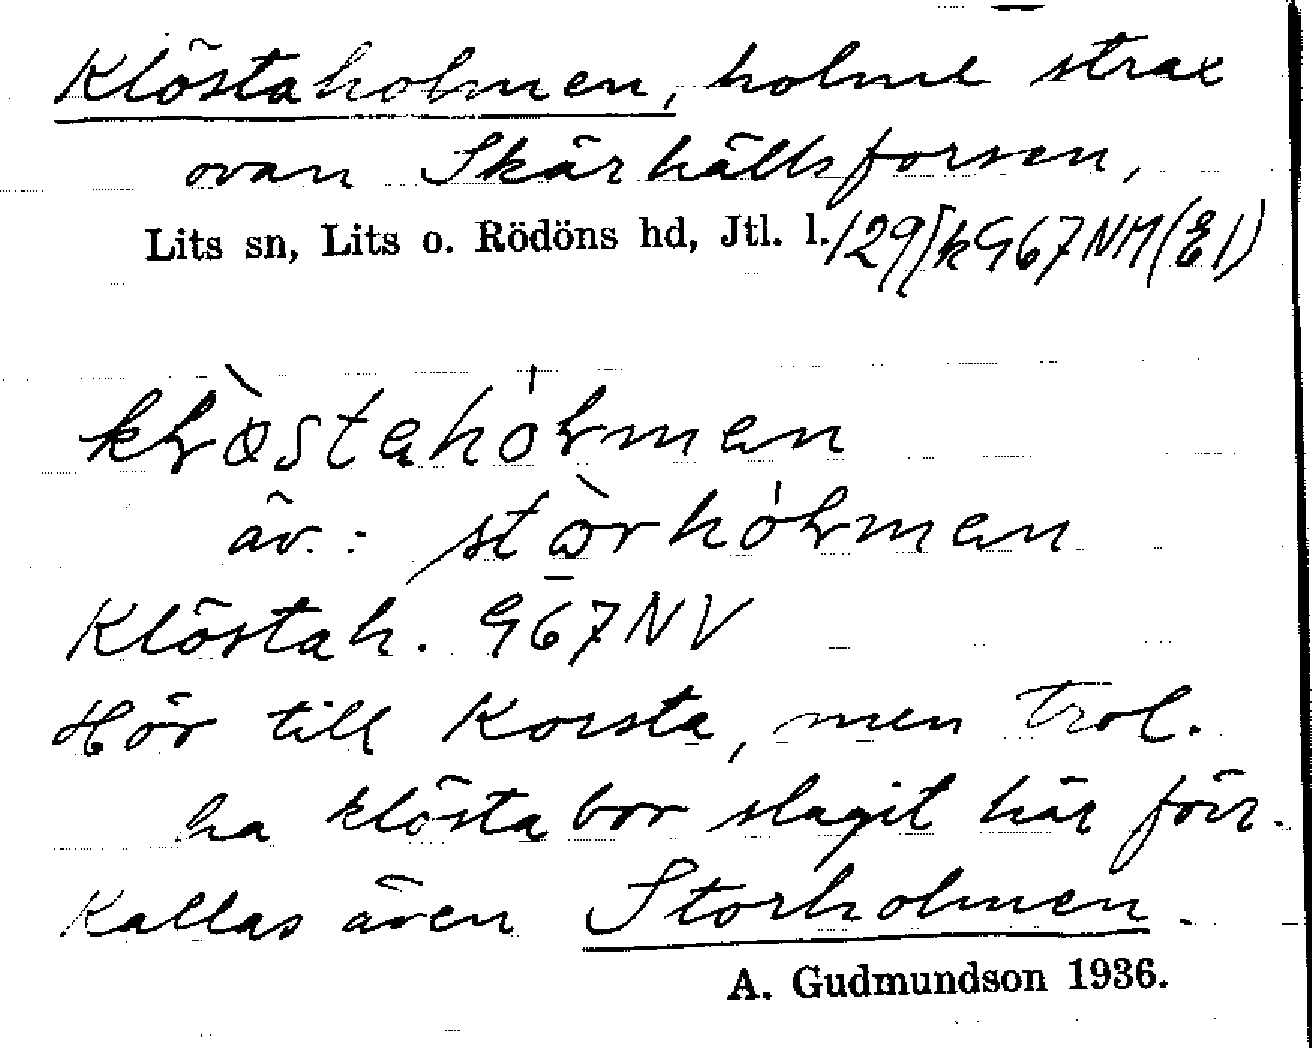 Klöstaholmen, holme strax
ovan Skärhällsforsen,
Lits sn, Lits o. Rödöns hd, Jtl. l.
klòstahólmen
äv.: stòrhólmen
Klöstah. G67NV
Hör till Korsta, men trol.
ha klöstabor slagit här förr.
Kallas även Storholmen.
A. Gudmundson 1936.